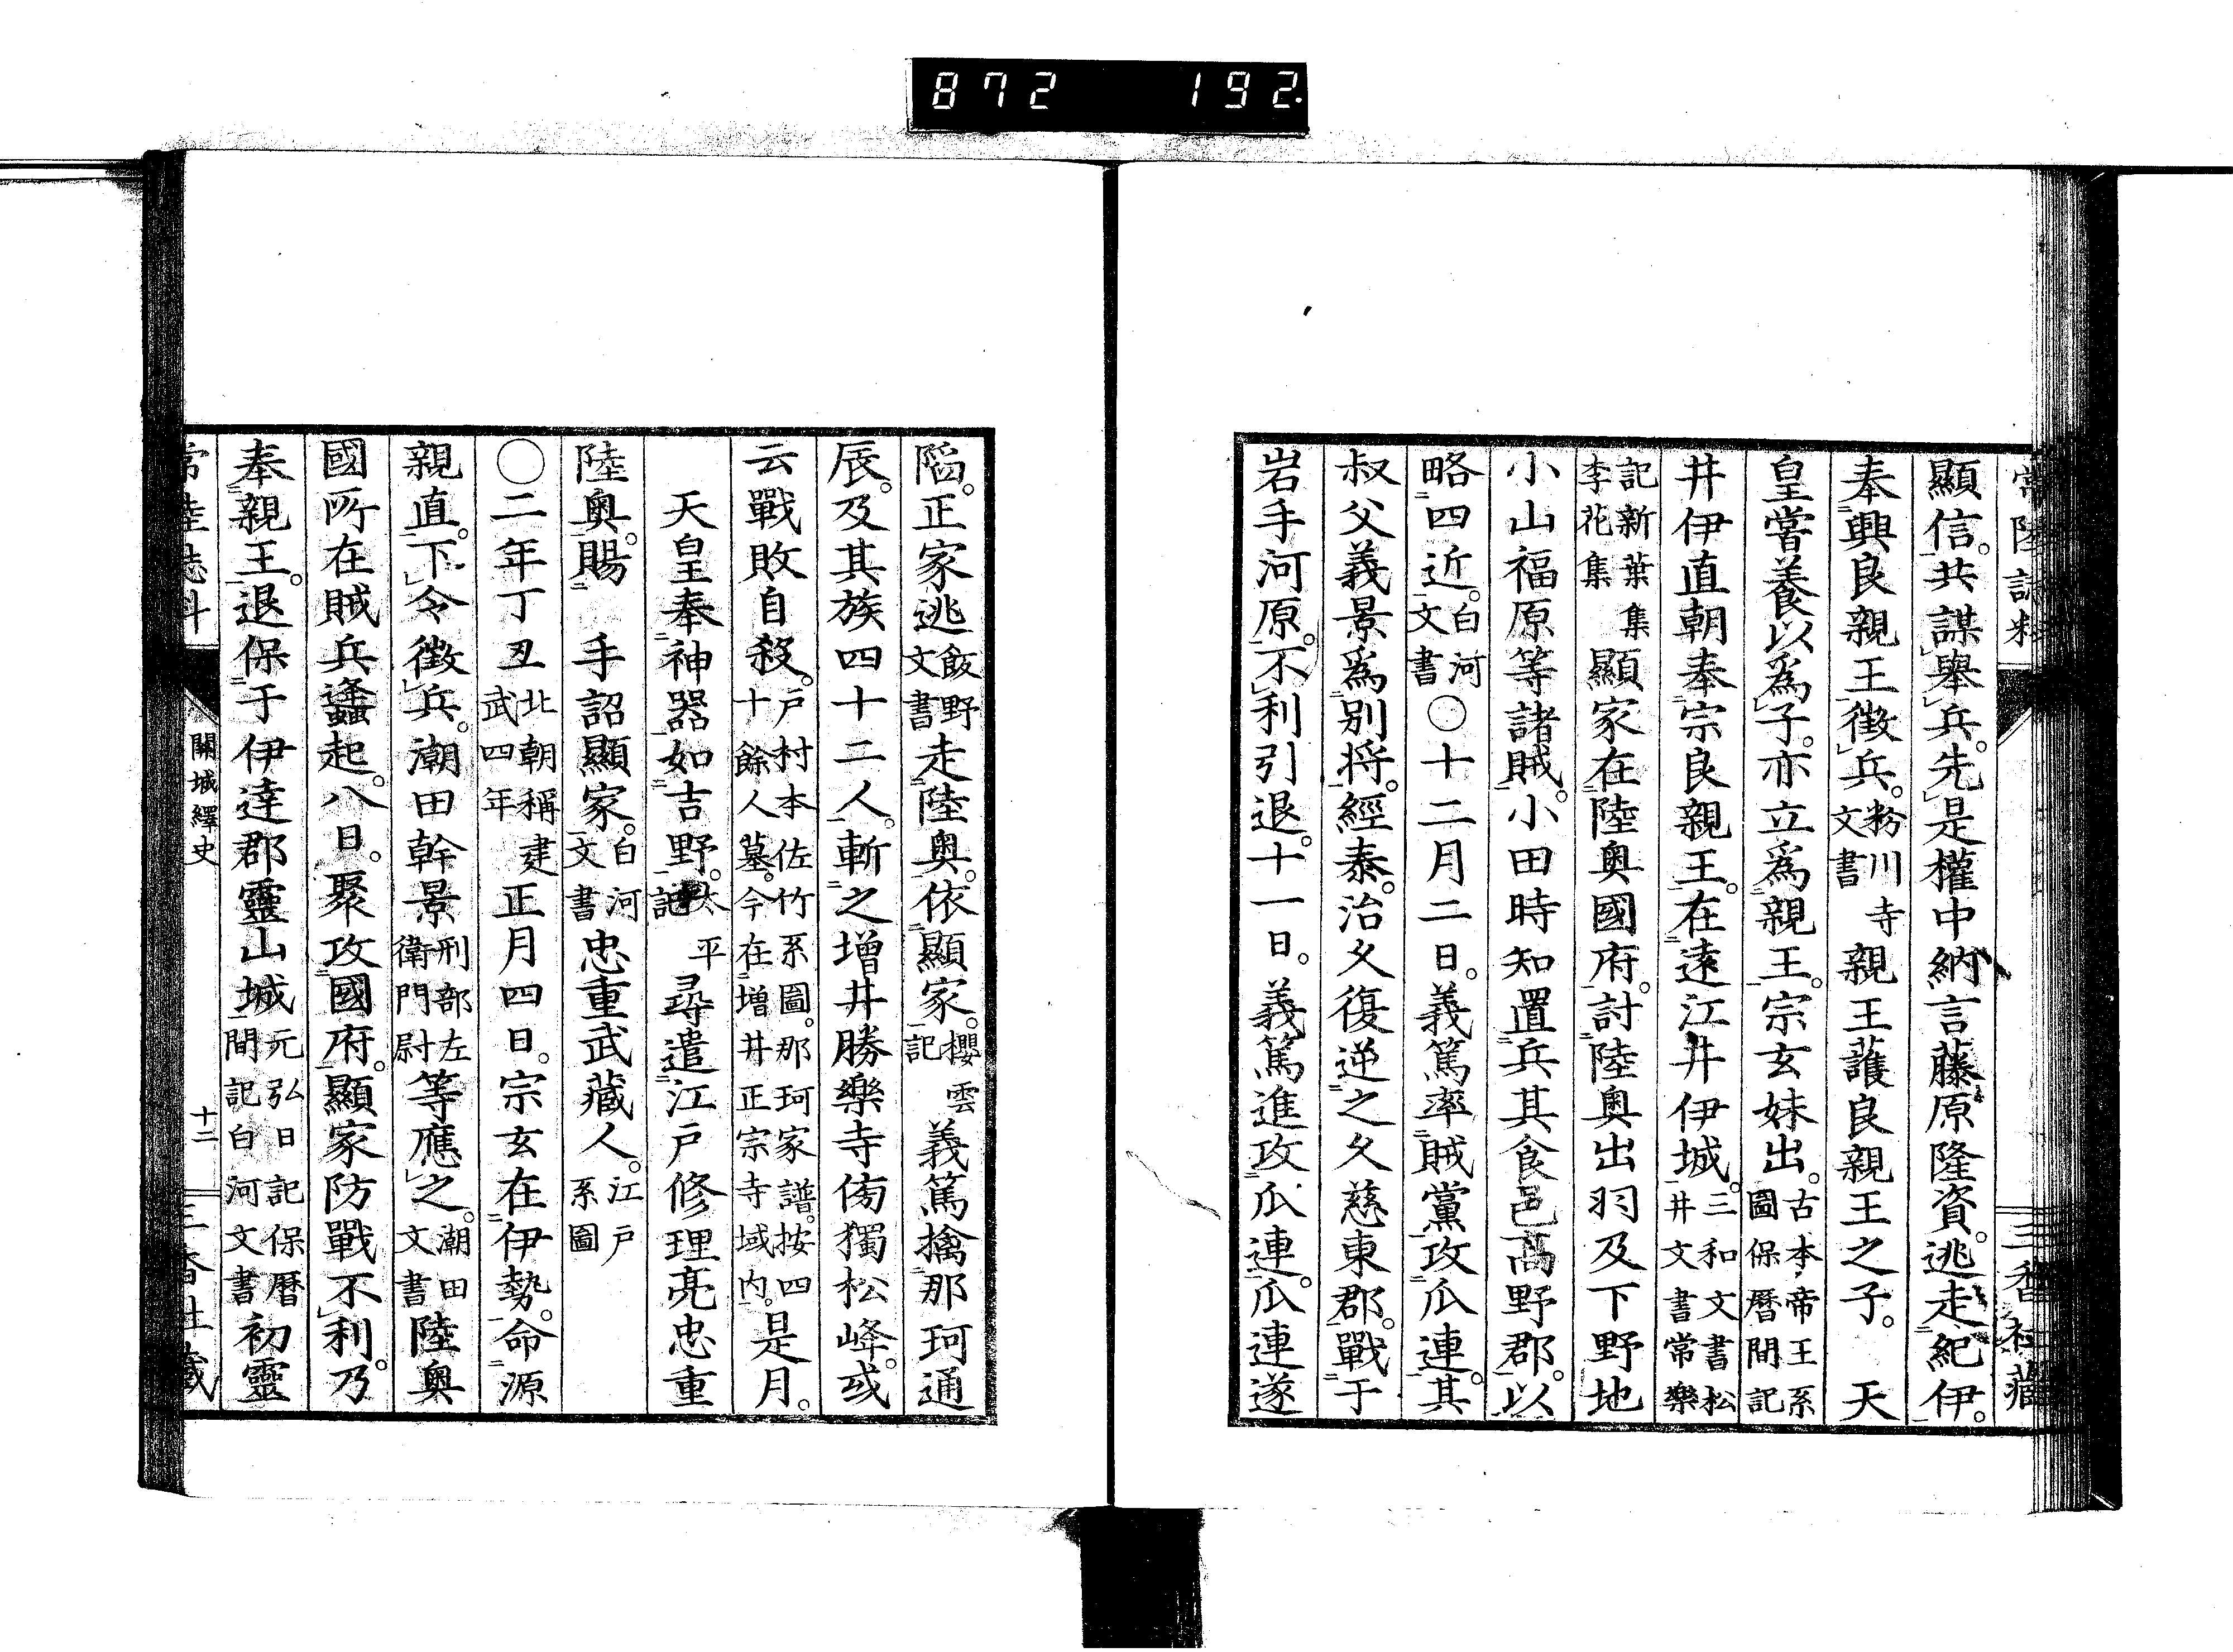 872 192
常陸誌料
三香社藏
顯信。共謀舉兵。先是權中納言藤原隆資。逃走紀伊。
奉興良親王徵兵。粉川寺文書親王護良親王之子。 天
皇嘗養以爲子。亦立爲親王。宗玄妹出。古本帝王系圖保曆間記
井伊直朝奉宗良親王。在遠江井伊城。三和文書松井文書常樂
記新葉集李花集顯家在陸奧國府。討陸奧出羽及下野地
小山福原等諸賊。小田時知置兵其食邑高野郡。以
略四近。白河文書○十二月二日。義篤率賊黨攻瓜連。其
叔父義景爲別將。經泰。治久復逆之久慈東郡。戰于
岩手河原。不利引退。十一日。義篤進攻瓜連。瓜連遂
陷。正家逃飯野文書走陸奧。依顯家。櫻雲記義篤擒那珂通
辰。及其族四十二人。斬之增井勝樂寺傍獨松峰。或
云戰敗自殺。戶村本佐竹系圖。那珂家譜。按四十餘人墓。今在增井正宗寺域内。是月。
天皇奉神器如吉野。太平記尋遣江戶修理亮忠重
陸奧。賜 手詔顯家。白河文書忠重武藏人。江戶系圖
○二年丁丑北朝稱建武四年正月四日。宗玄在伊勢。命源
親直。下令徵兵。潮田幹景刑部左衛門尉等應之。潮田文書陸奧
國所在賊兵蜂起。八日。聚攻國府。顯家防戰不利。乃
奉親王。退保于伊達郡靈山城元弘日記保曆間記白河文書初靈
常陸誌料
關城繹史
十二
三香社藏